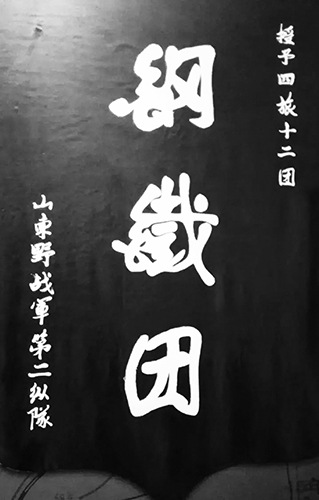 授予四旅十二团
钢鐵团
山東野战軍第二纵隊